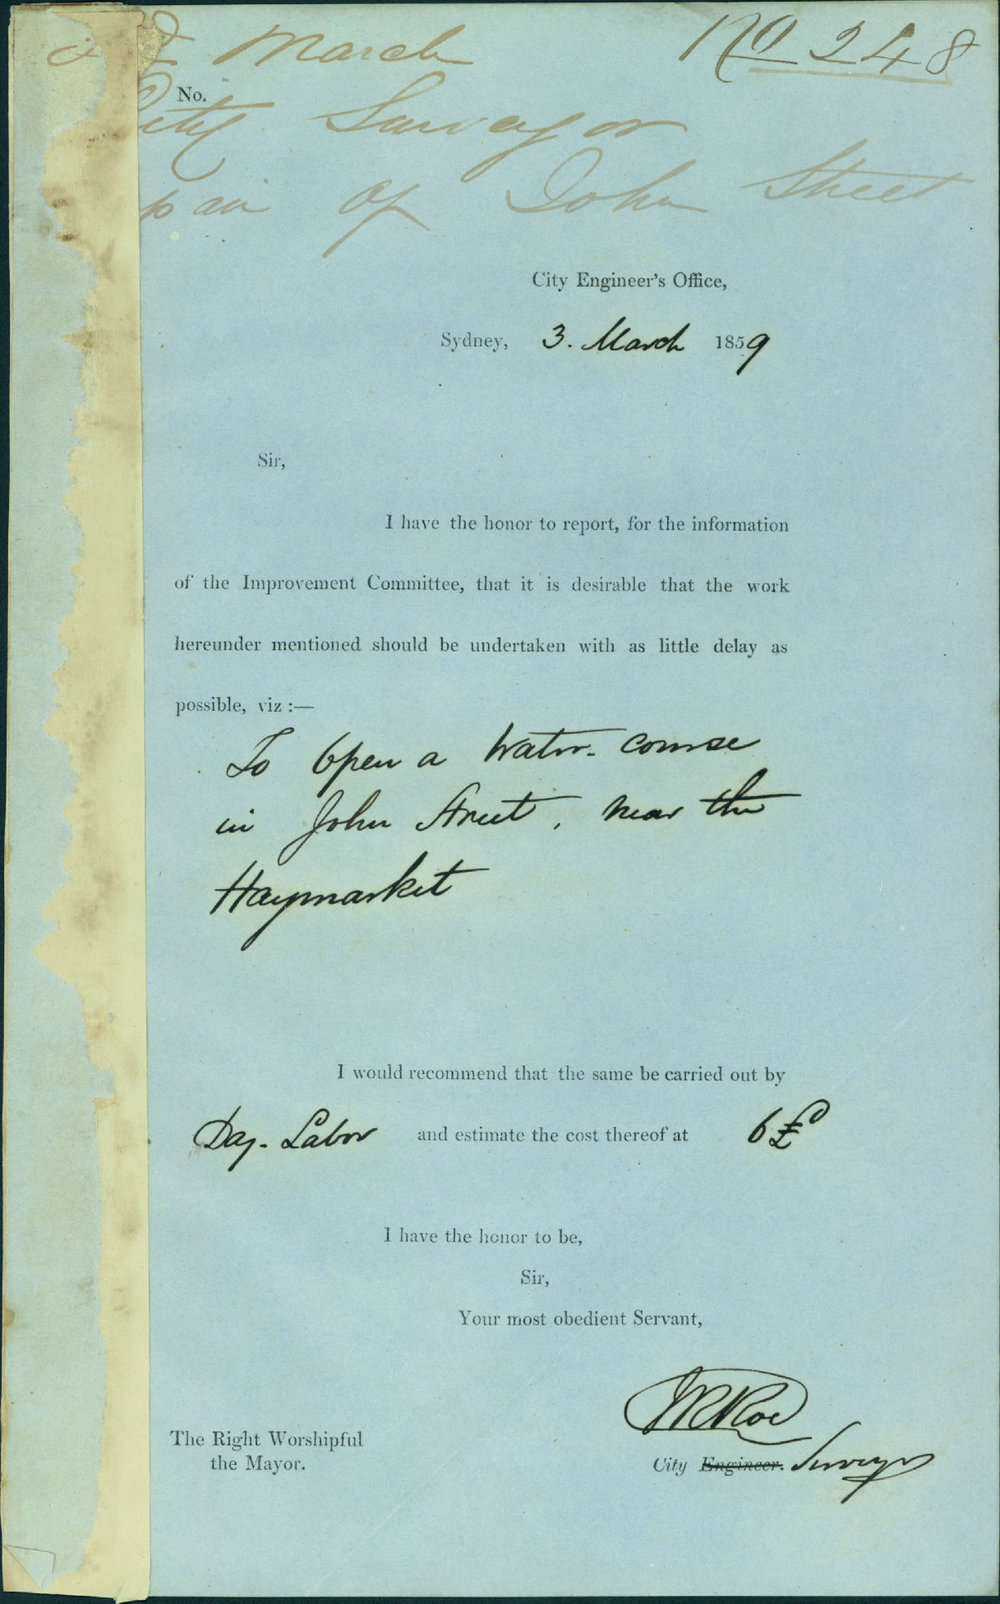 March No 248
No.
City Surveyor
pair of John Street
City Engineer's Office,
Sydney, 3. March 1859
Sir,
I have the honor to report, for the information
of the Improvement Committee, that it is desirable that the work
hereunder mentioned should be undertaken with as little delay as
possible, viz :—
To Open a Water-course
in John Street, near the
Haymarket
I would recommend that the same be carried out by
Day-Labor and estimate the cost thereof at 6£
I have the honor to be,
Sir,
Your most obedient Servant,
WRRoe
The Right Worshipful
the Mayor.
City Engineer. Surveyor